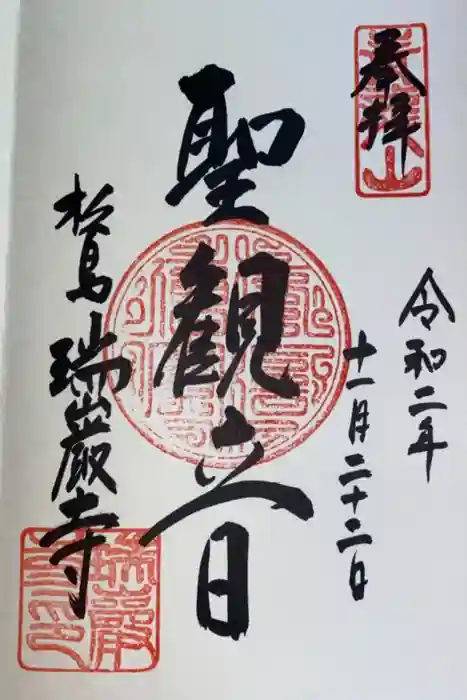 奉拝
令和二年
十一月二十二日
聖観音
松島 瑞巌寺
瑞巌
寺印